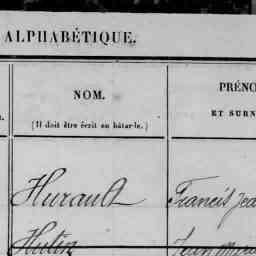 ALPHABÉTIQUE.
NOM.
(Il doit être écrit en bâtarde.)
PRÉNO
ET SURN
Hurault
Francis Jea
Hutin
Jean Mari